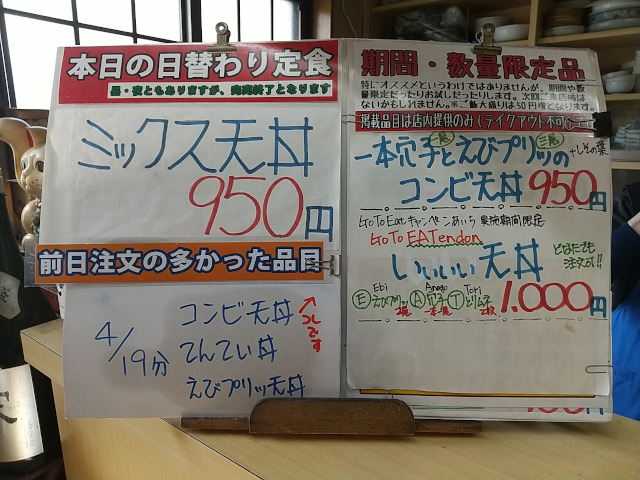 本日の日替わり定食
昼・夜ともありますが、完売終了となります
ミックス天丼
950円
前日注文の多かった品目
4/19分
コンビ天丼
てんてい丼
えびプリッ天丼
↑コレです
期間・数量限定品
特にオススメというわけではありませんが、期間や数
量限定だったりお試しだったりします。次回ご来店時は
ないかもしれません。※ご飯大盛りは50円増となります。
掲載品目は店内提供のみ(テイクアウト不可)
一本穴子とえびプリッの
二尾 三尾 +しその葉
コンビ天丼 950円
GoToEatキャンペーンあいち 実施期間限定
GoTo EATendon
いいいい天丼
どなたでも
注文可!!
Ebi Anago Tori
Ⓔえびプリッ Ⓐ穴子 Ⓣとりムネ
2尾 一本 2枚
1.000円